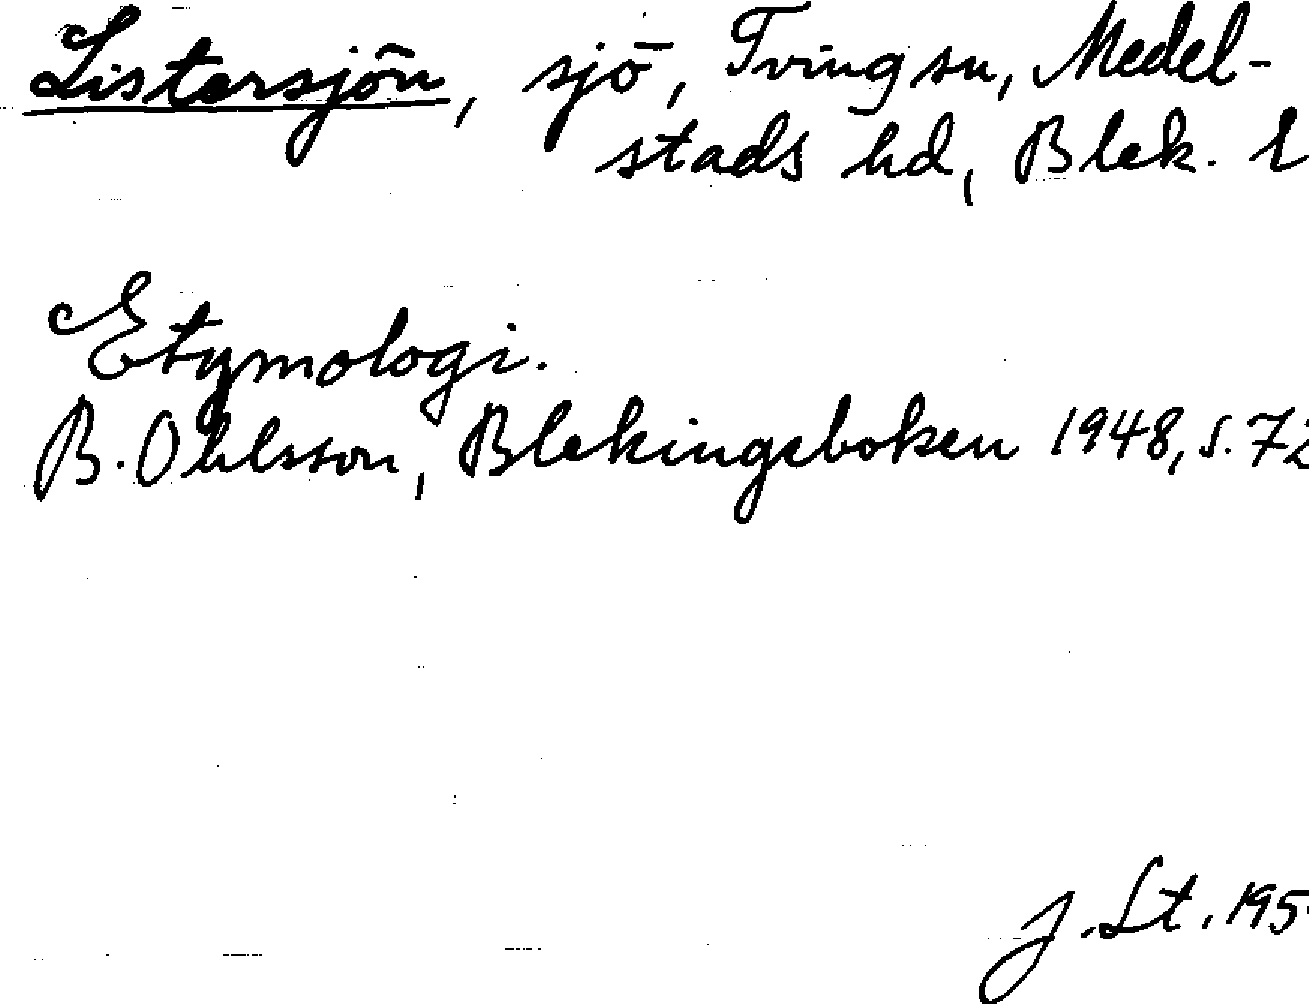 Listersjön, sjö, Tving sn, Medel-
stads hd, Blek. l
Etymologi.
B. Ohlsson, Blekingeboken 1948, s. 72
J. St. 195